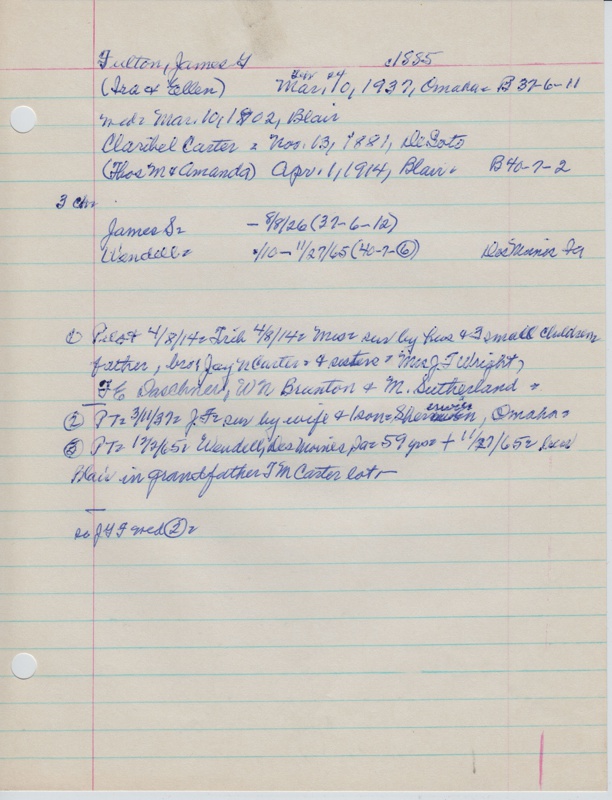 Fulton, James G c1885
(Ira & Ellen) Mar. 10, 1937, Omaha = B 37-6-11
med = Mar. 10, 1902, Blair
Claribel Carter = Nov. 13, 1881, DeSoto
(Thos M & Amanda) Apr. 1, 1914, Blair = B 40-7-2
3 chn
James S = - 8/8/26 (37-6-12)
Wendell = /10 - 11/27/65 (40-7-6) Des Moines Ia
① Pilot 4/8/14 = Trib 4/8/14 = Mrs = sur by hus & 3 small children
father, bro, Jay N Carter = & sisters = Mrs J F Wright,
F E Daschner, W N Brunton & M. Sutherland =
② PT = 3/11/37 = J F = sur by wife & 1 son = Omaha =
③ PT = 12/2/65 = Wendell, Des Moines, Ia = 59 yrs = + 11/27/65 =
Blair in grandfather T M Carter lot
J G F med ② =